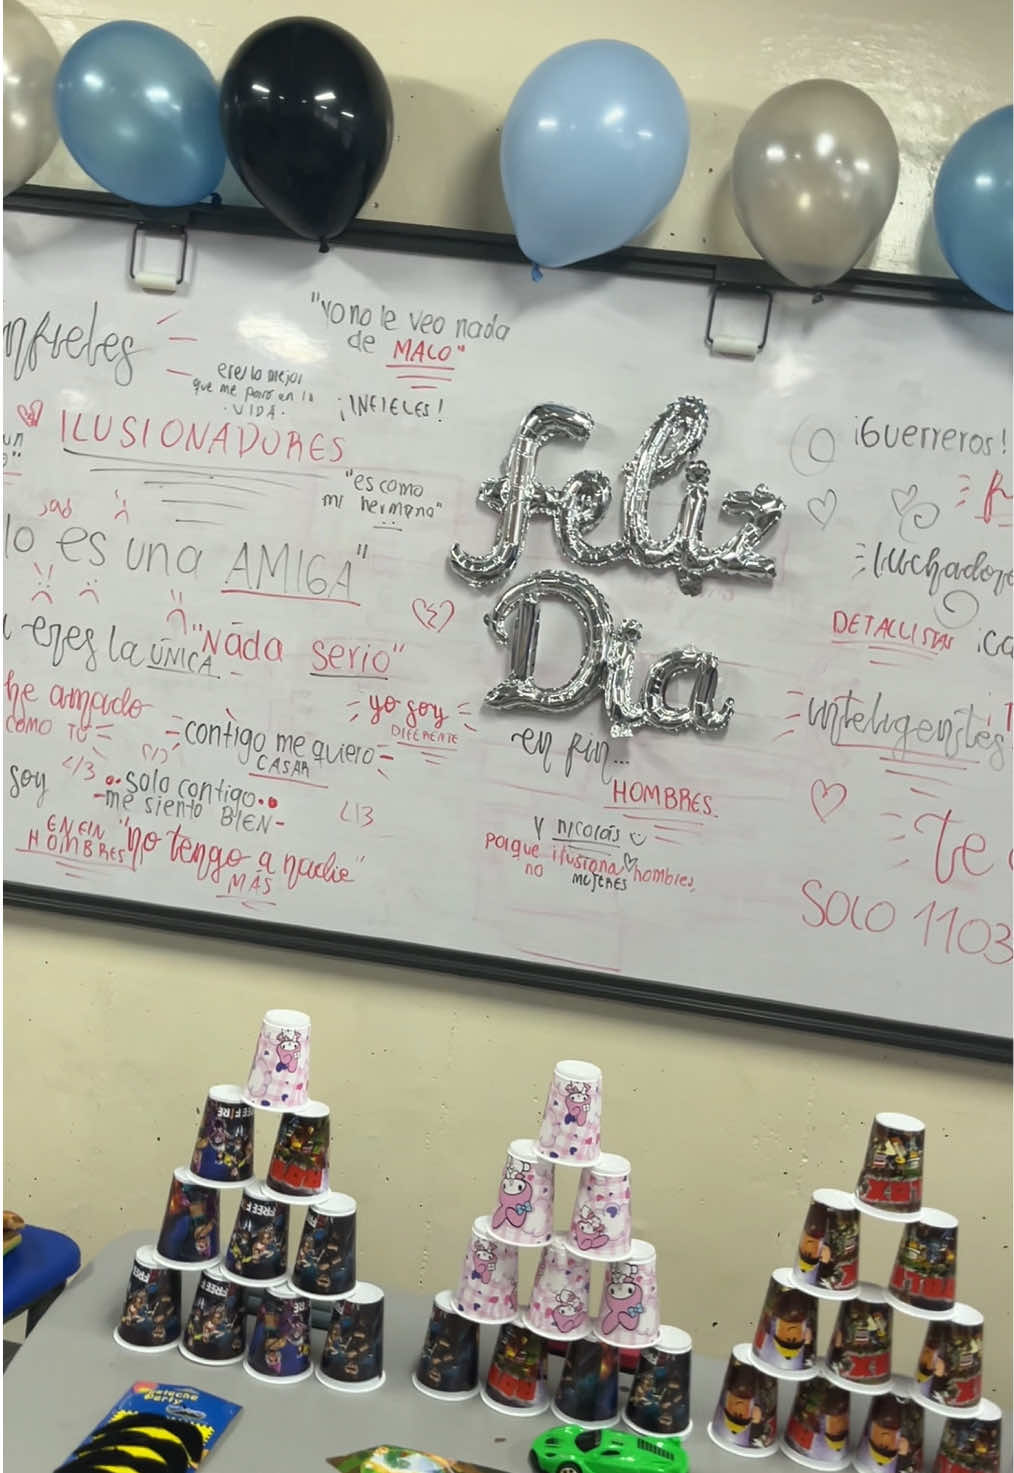 "Yo no le veo nada
de MALO"
eres lo mejor
que me paso en la
· VIDA ·
¡INFIELES!
ILUSIONADORES
"es como
mi hermana"
lo es una AMIGA"
eres la ÚNICA
"Nada serio"
he amado
COMO TÚ
yo soy
DIFERENTE
contigo me quiero
CASAR
soy
</3
solo contigo
-me siento BIEN-
</3
EN FIN
HOMBRES
"no tengo a nadie"
MÁS
Feliz
Dia
en fin...
HOMBRES
Y nicolás
porque ilusiona hombres,
no mujeres
¡Guerreros!
DETALLISTAS
inteligentes
Te
SOLO 1103
FREE FIRE
FREE F
party